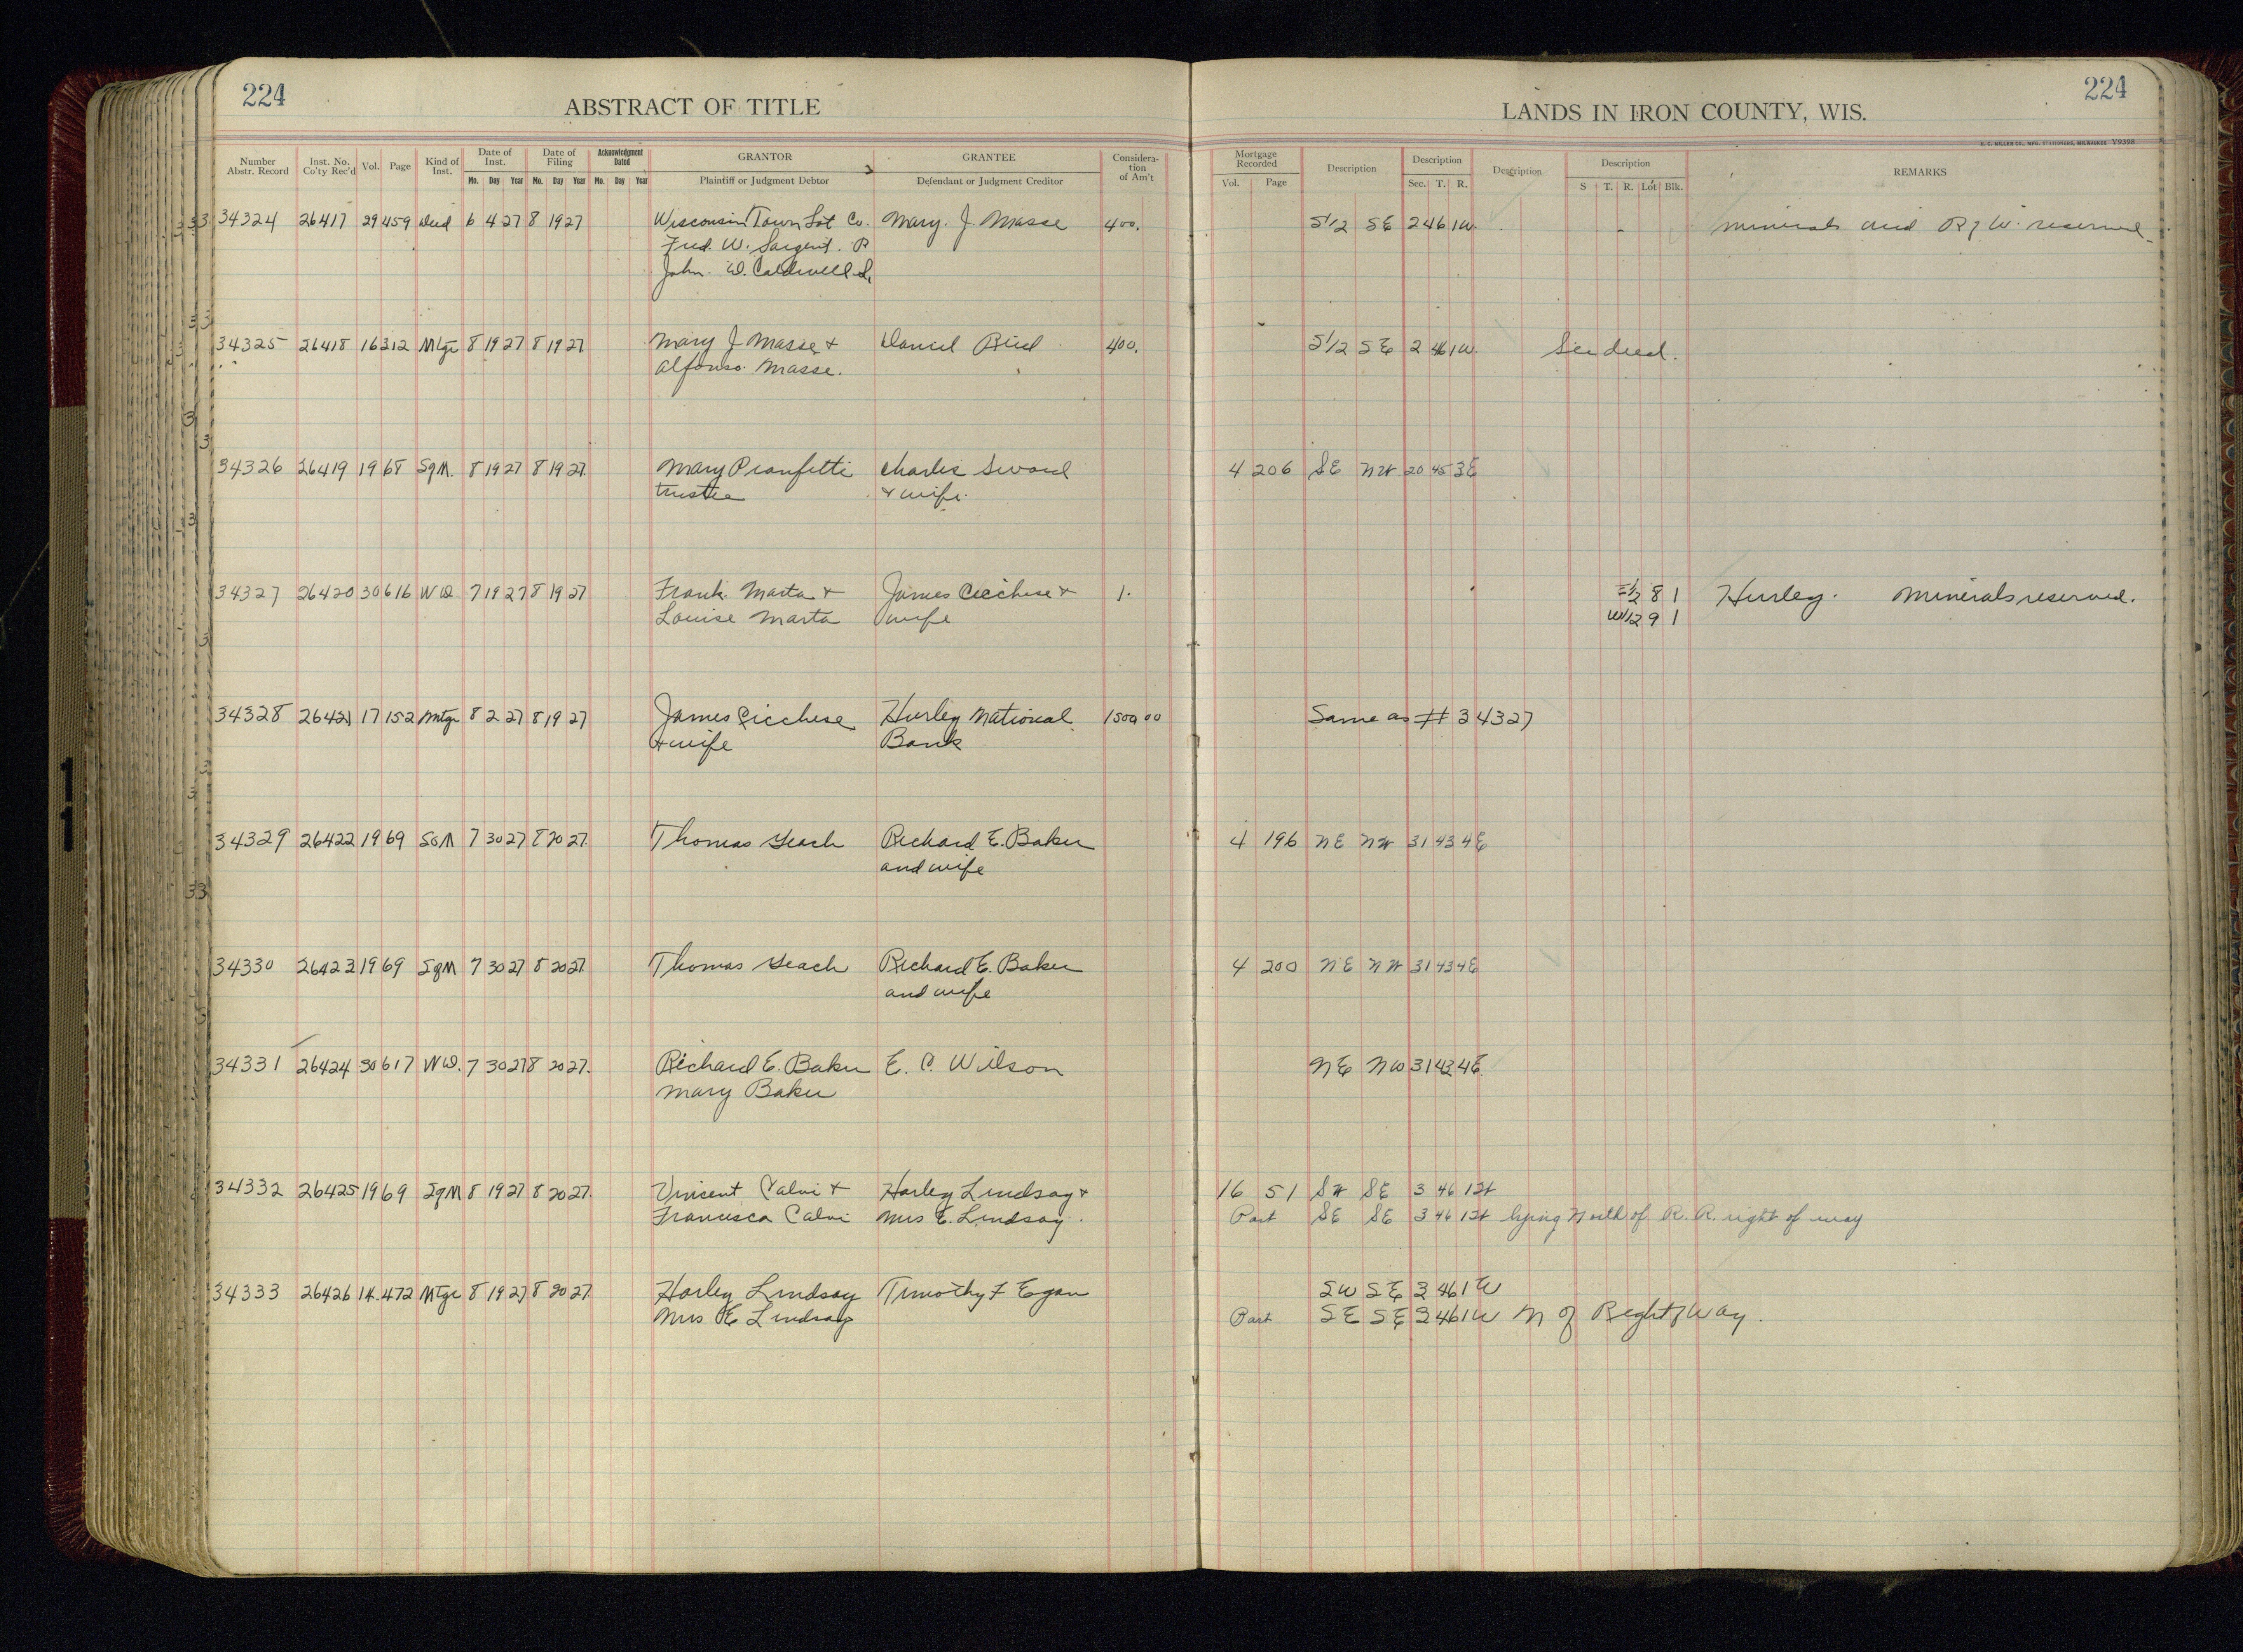 224
ABSTRACT OF TITLE
224
LANDS IN IRON COUNTY, WIS.
H. C. MILLER CO., MFG. STATIONERS, MILWAUKEE V9398
Number Abstr. Record | Inst. No. Co'ty Rec'd | Vol. | Page | Kind of Inst. | Date of Inst. Mo. Day Year | Date of Filing Mo. Day Year | Acknowledgment Dated Mo. Day Year | GRANTOR Plaintiff or Judgment Debtor | GRANTEE Defendant or Judgment Creditor | Consideration of Am't | Mortgage Recorded Vol. Page | Description | Description Sec. T. R. | Description | Description S T. R. Lot Blk. | REMARKS
34324 26417 29 459 Deed 6 4 27 8 19 27 Wisconsin Town Lot Co. Mary. J. Masse 400. S1/2 SE 2 46 1W. minerals and R of W. reserved.
Fred. W. Sargent. P
John. D. Caldwell S.
34325 26418 16 312 Mtge 8 19 27 8 19 27 Mary J Masse + Daniel Reid 400. S1/2 SE 2 46 1W. See deed.
Alfonso Masse.
34326 26419 19 68 SgM. 8 19 27 8 19 27. Mary Pranfetti Charles 4 206 SE NW 20 45 3E
trustee + wife.
34327 26420 30 616 WD 7 19 27 8 19 27 Frank Marta + James Cicchese + 1. E1/2 8 1 Hurley. Minerals reserved.
Louise Marta wife W1/2 9 1
34328 26421 17 152 Mtge 8 2 27 8 19 27 James Cicchese Hurley National 1500 00 Same as # 34327
+ wife Bank
34329 26422 19 69 SgM 7 30 27 8 20 27. Thomas Richard E. Baker 4 196 NE NW 31 43 4E
and wife
34330 26423 19 69 SgM 7 30 27 8 20 27. Thomas Richard E. Baker 4 200 NE NW 31 43 4E
and wife
34331 26424 30 617 WD. 7 30 27 8 20 27. Richard E. Baker E. C. Wilson NE NW 31 43 4E.
Mary Baker
34332 26425 19 69 SgM 8 19 27 8 20 27. Vincent Calvi + Harley Lindsay + 16 51 SW SE 3 46 1W
Francesca Calvi Mrs E. Lindsay. Part SE SE 3 46 1W lying North of R. R. right of way
34333 26426 14 472 Mtge 8 19 27 8 20 27. Harley Lindsay Timothy F Egan SW SE 3 46 1W
Mrs E Lindsay Part SE SE 3 46 1W N of Right of Way.